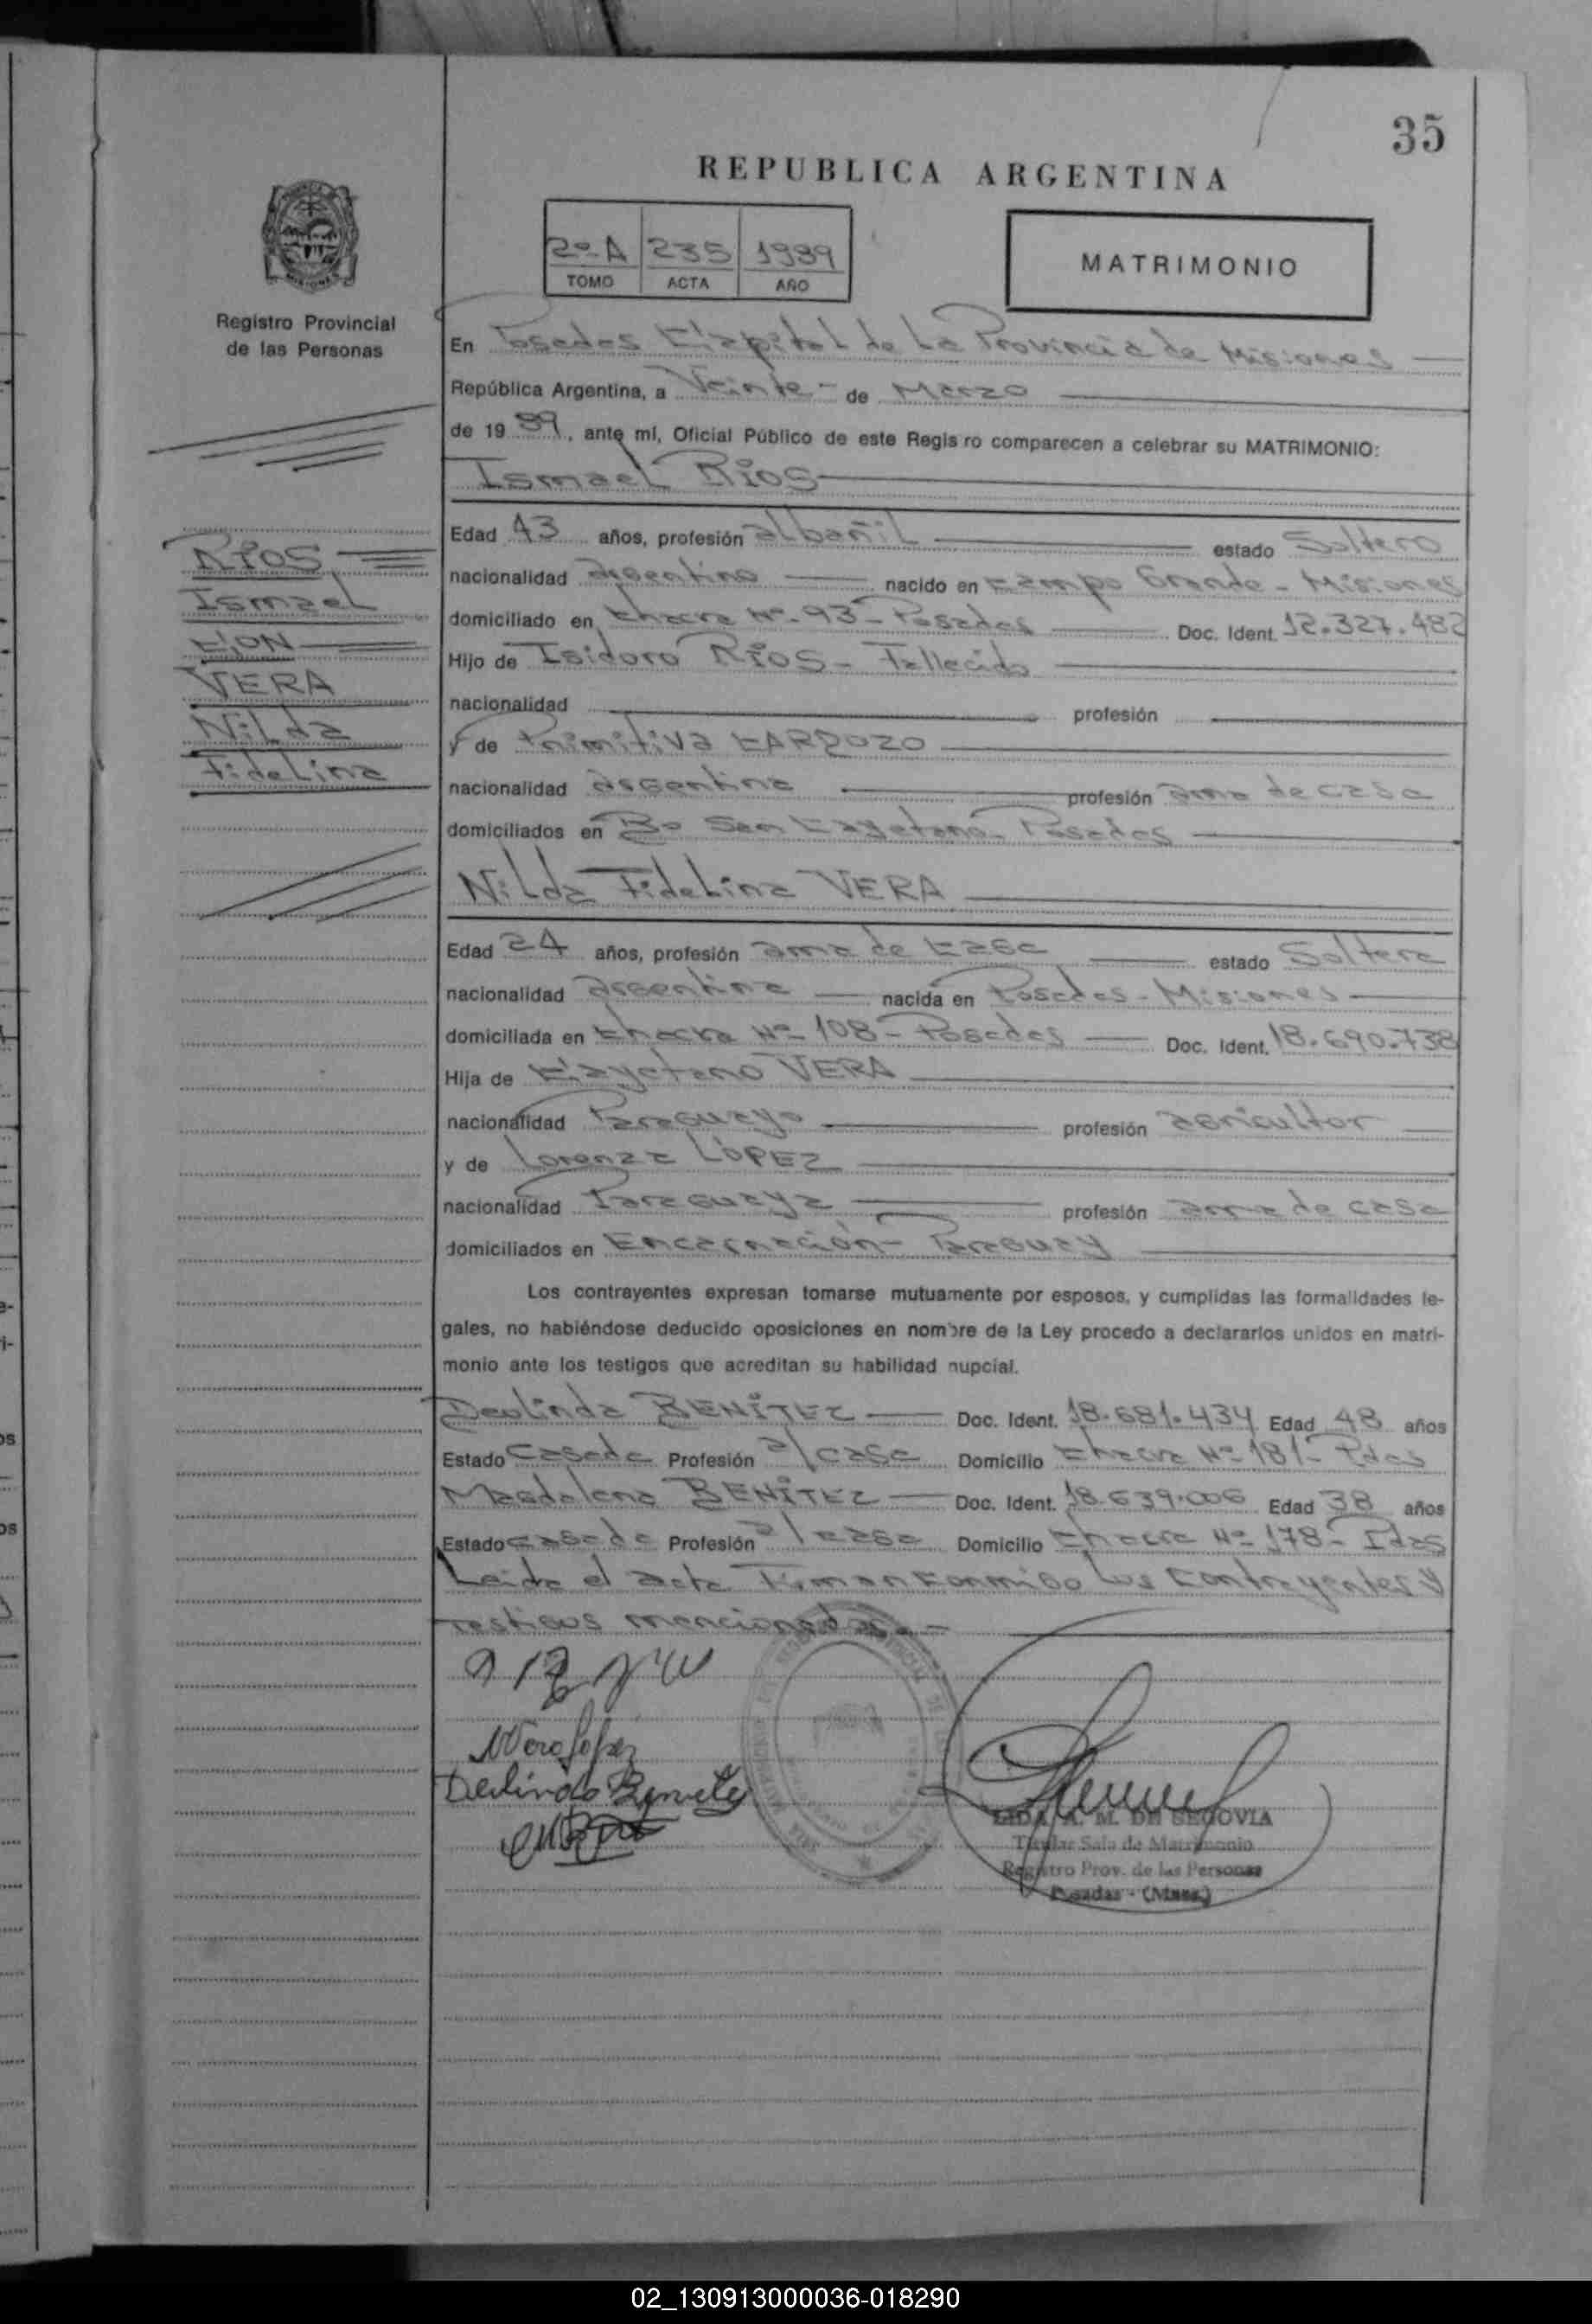 35
REPUBLICA ARGENTINA
2º A 235 1989
TOMO ACTA AÑO
MATRIMONIO
Registro Provincial
de las Personas
En Posadas Capital de La Provincia de Misiones
República Argentina, a Veinte - de Marzo
de 19 89, ante mí, Oficial Público de este Regis ro comparecen a celebrar su MATRIMONIO:
Ismael RÍOS
Edad 43 años, profesión albañil estado Soltero
nacionalidad argentino nacido en Campo Grande - Misiones
domiciliado en Chacra Nº 93 - Posadas Doc. Ident. 12.327.482
Hijo de Isidoro RÍOS - Fallecido
nacionalidad profesión
y de Primitiva CARDOZO
nacionalidad argentina profesión ama de casa
domiciliados en Bº San Cayetano - Posadas
RÍOS
Ismael
CON
VERA
Nilda
Fidelina
Nilda Fidelina VERA
Edad 24 años, profesión ama de casa estado Soltera
nacionalidad argentina nacida en Posadas - Misiones
domiciliada en Chacra Nº 108 - Posadas Doc. Ident. 18.690.738
Hija de Cayetano VERA
nacionalidad Paraguayo profesión agricultor
y de Lorenza LÓPEZ
nacionalidad Paraguaya profesión ama de casa
domiciliados en Encarnación - Paraguay
Los contrayentes expresan tomarse mutuamente por esposos, y cumplidas las formalidades le-
gales, no habiéndose deducido oposiciones en nombre de la Ley procedo a declararlos unidos en matri-
monio ante los testigos que acreditan su habilidad nupcial.
Deolinda BENÍTEZ Doc. Ident. 18.681.434 Edad 48 años
Estado Casada Profesión a/casa Domicilio Chacra Nº 181 - Pdas
Magdalena BENÍTEZ Doc. Ident. 18.639.006 Edad 38 años
Estado casada Profesión a/casa Domicilio Chacra Nº 178 - Pdas
Leida el acta Firman conmigo Los contrayentes y
testigos mencionados.-
NVera López
LIDA A. M. DE SEGOVIA
Titular Sala de Matrimonio
Registro Prov. de las Personas
Posadas - (Mnes.)
02_130913000036-018290